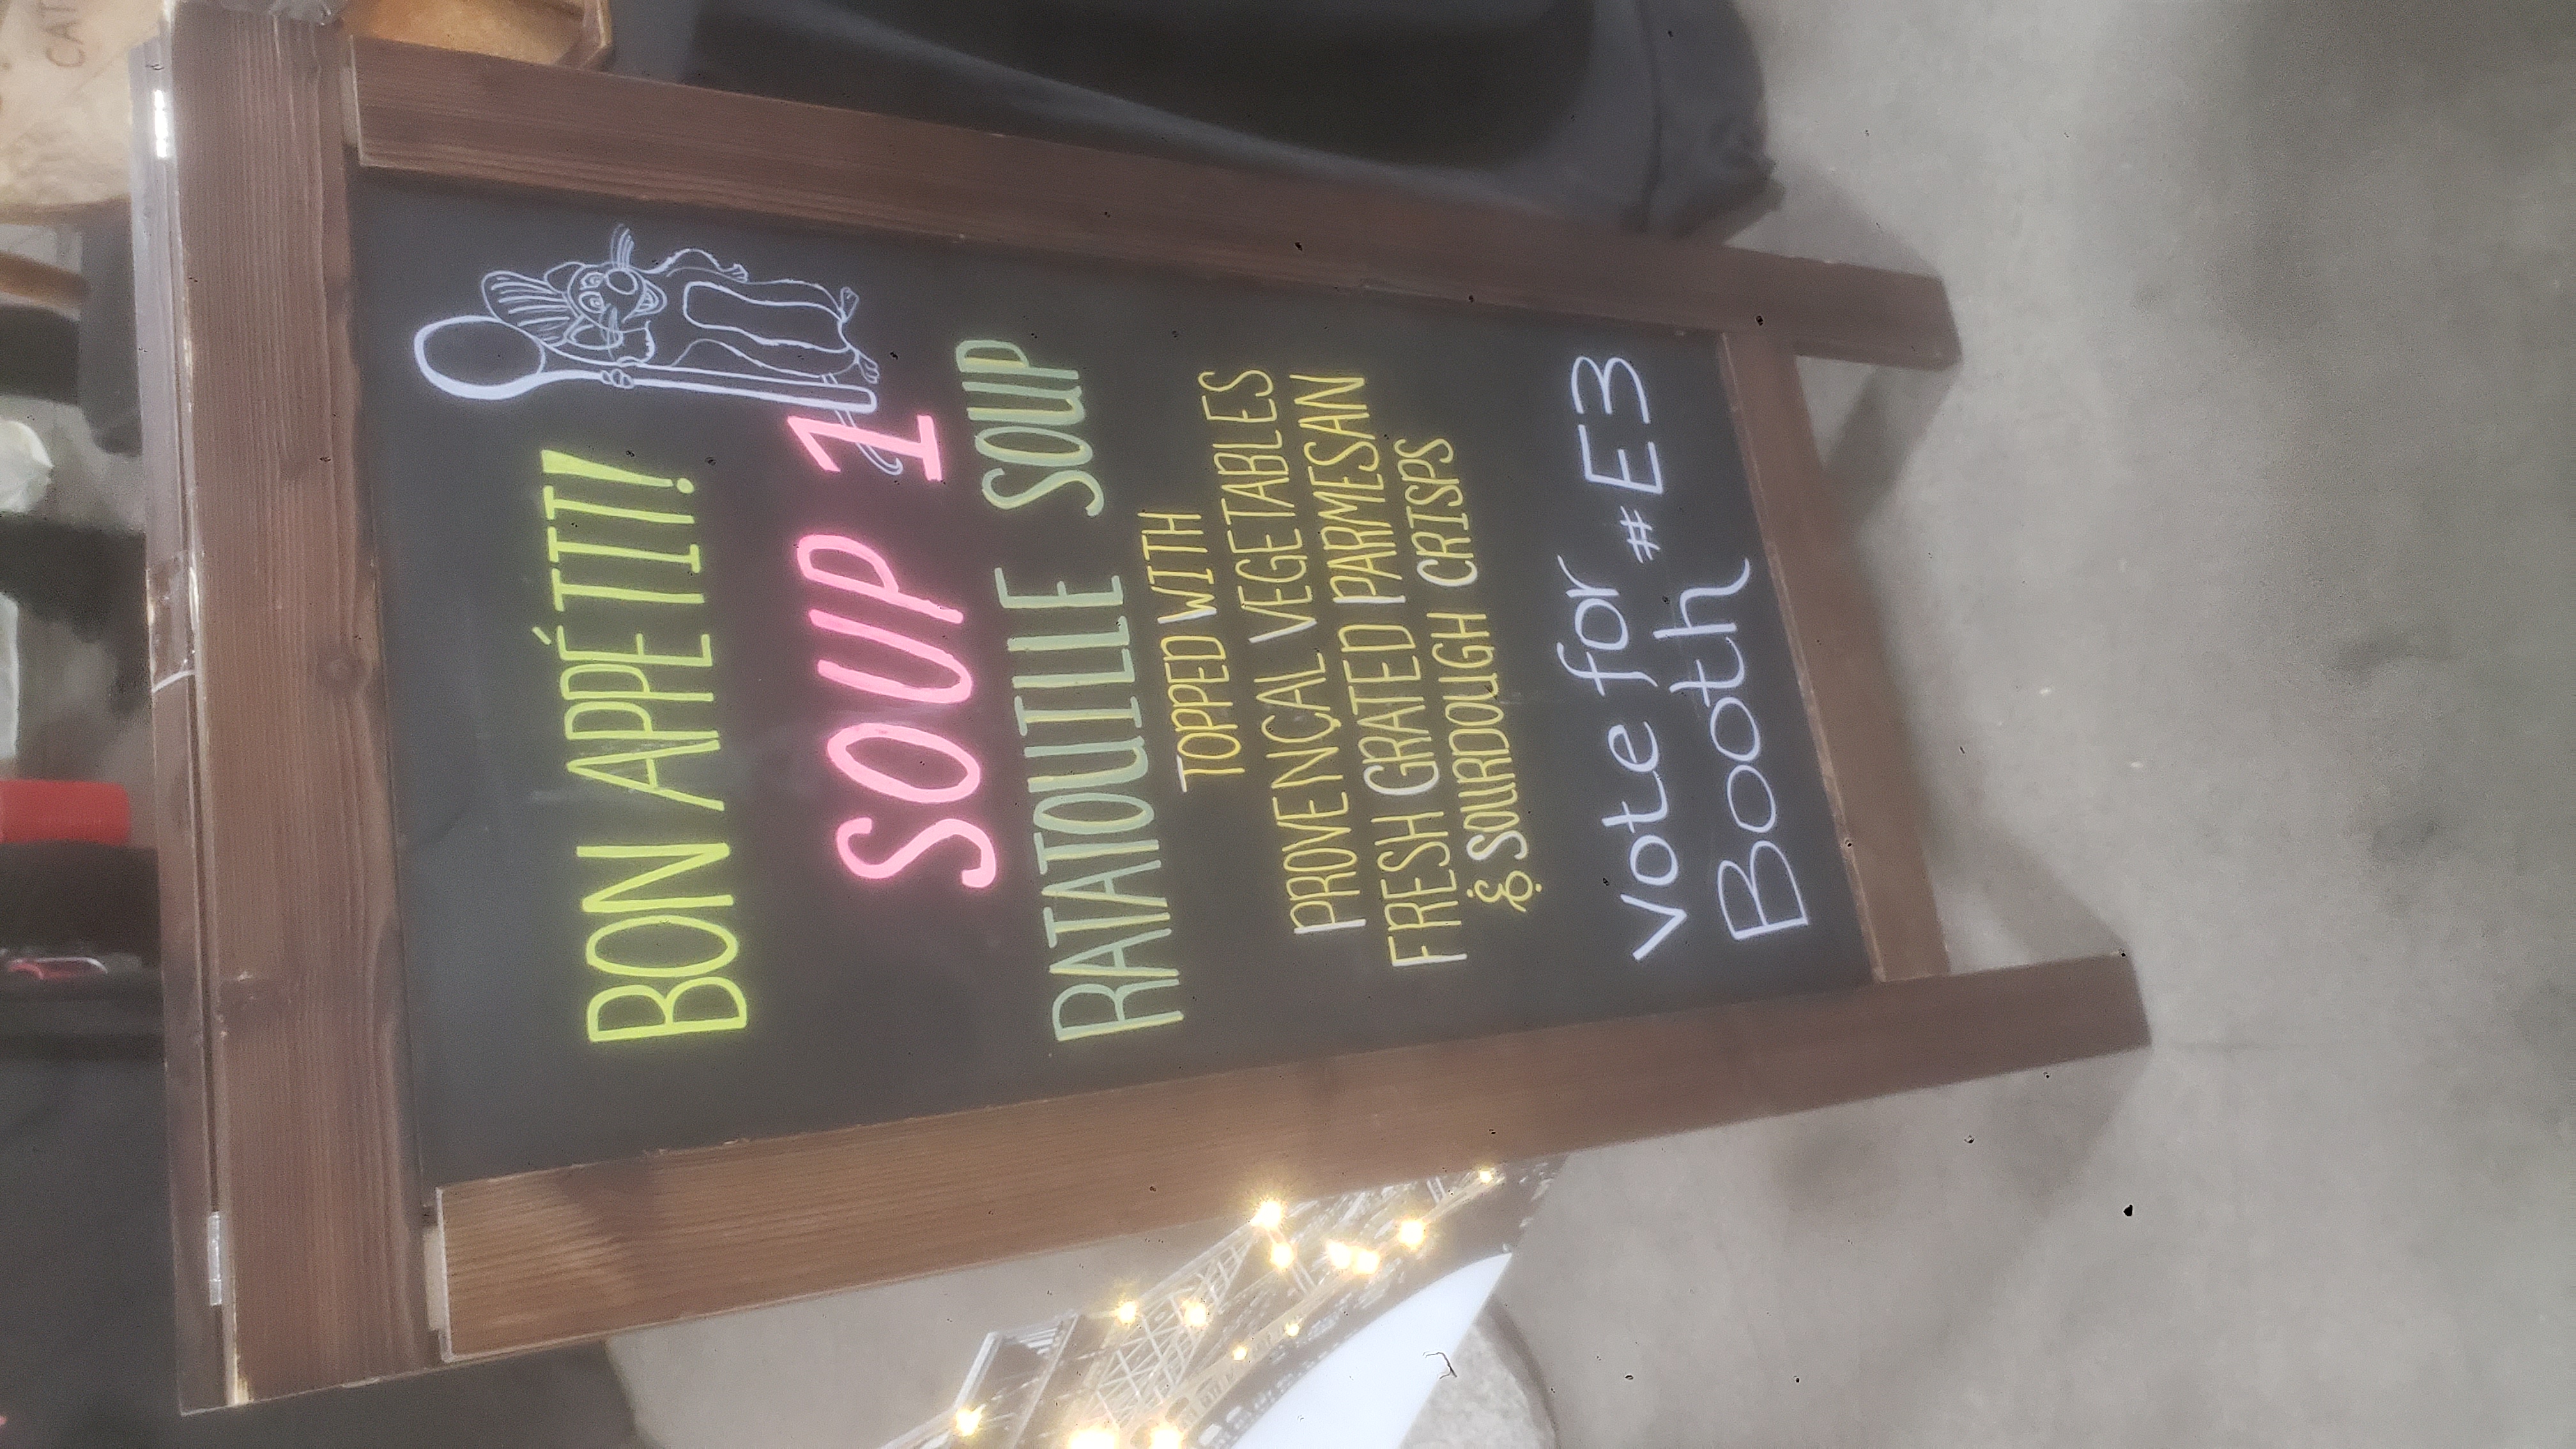 BON APPÉTIT!
SOUP 1
RATATOUILLE SOUP
TOPPED WITH
PROVENÇAL VEGETABLES
FRESH GRATED PARMESAN
& SOURDOUGH CRISPS
Vote for #E3
Booth
CAT